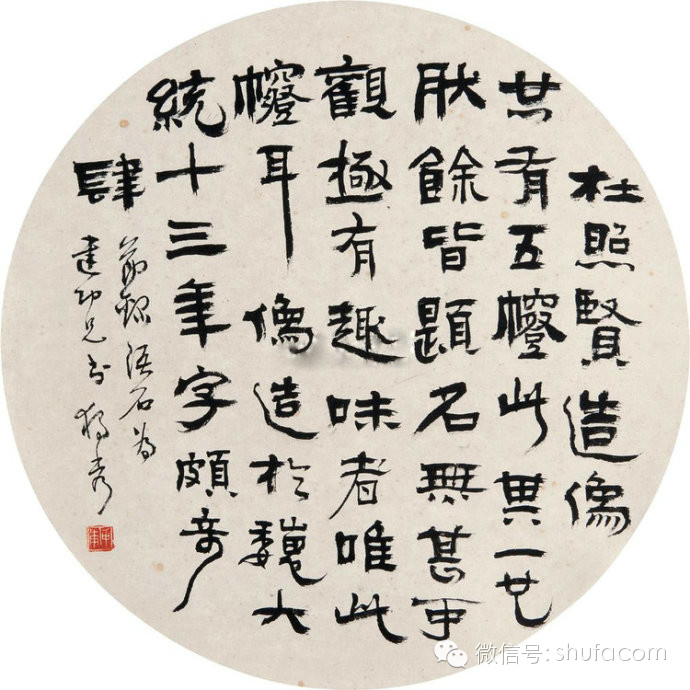 杜照賢造像
共有五此其一也
肰餘皆題名無甚可
觀極有趣味者唯此
耳 像造於魏大
統十三年字頗奇
肆
節録語石為
建功兄書 独秀
微信号: shufacom